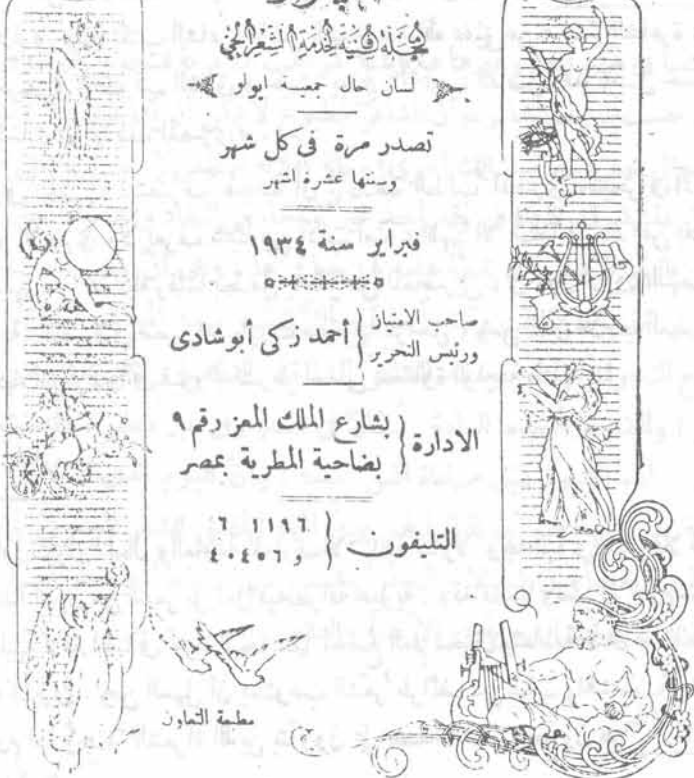 مجلة فنية لخدمة الشعر الحي
لسان حال جمعية ابولو
تصدر مرة فى كل شهر
وسنتها عشرة اشهر
فبراير سنة ١٩٣٤
صاحب الامتياز ورئيس التحرير { أحمد زكى أبو شادى
الادارة { بشارع الملك المعز رقم ٩
بضاحية المطرية بمصر
التليفون { ١١٩٦ ٦
و ٤٠٤٥٦
مطبعة التعاون